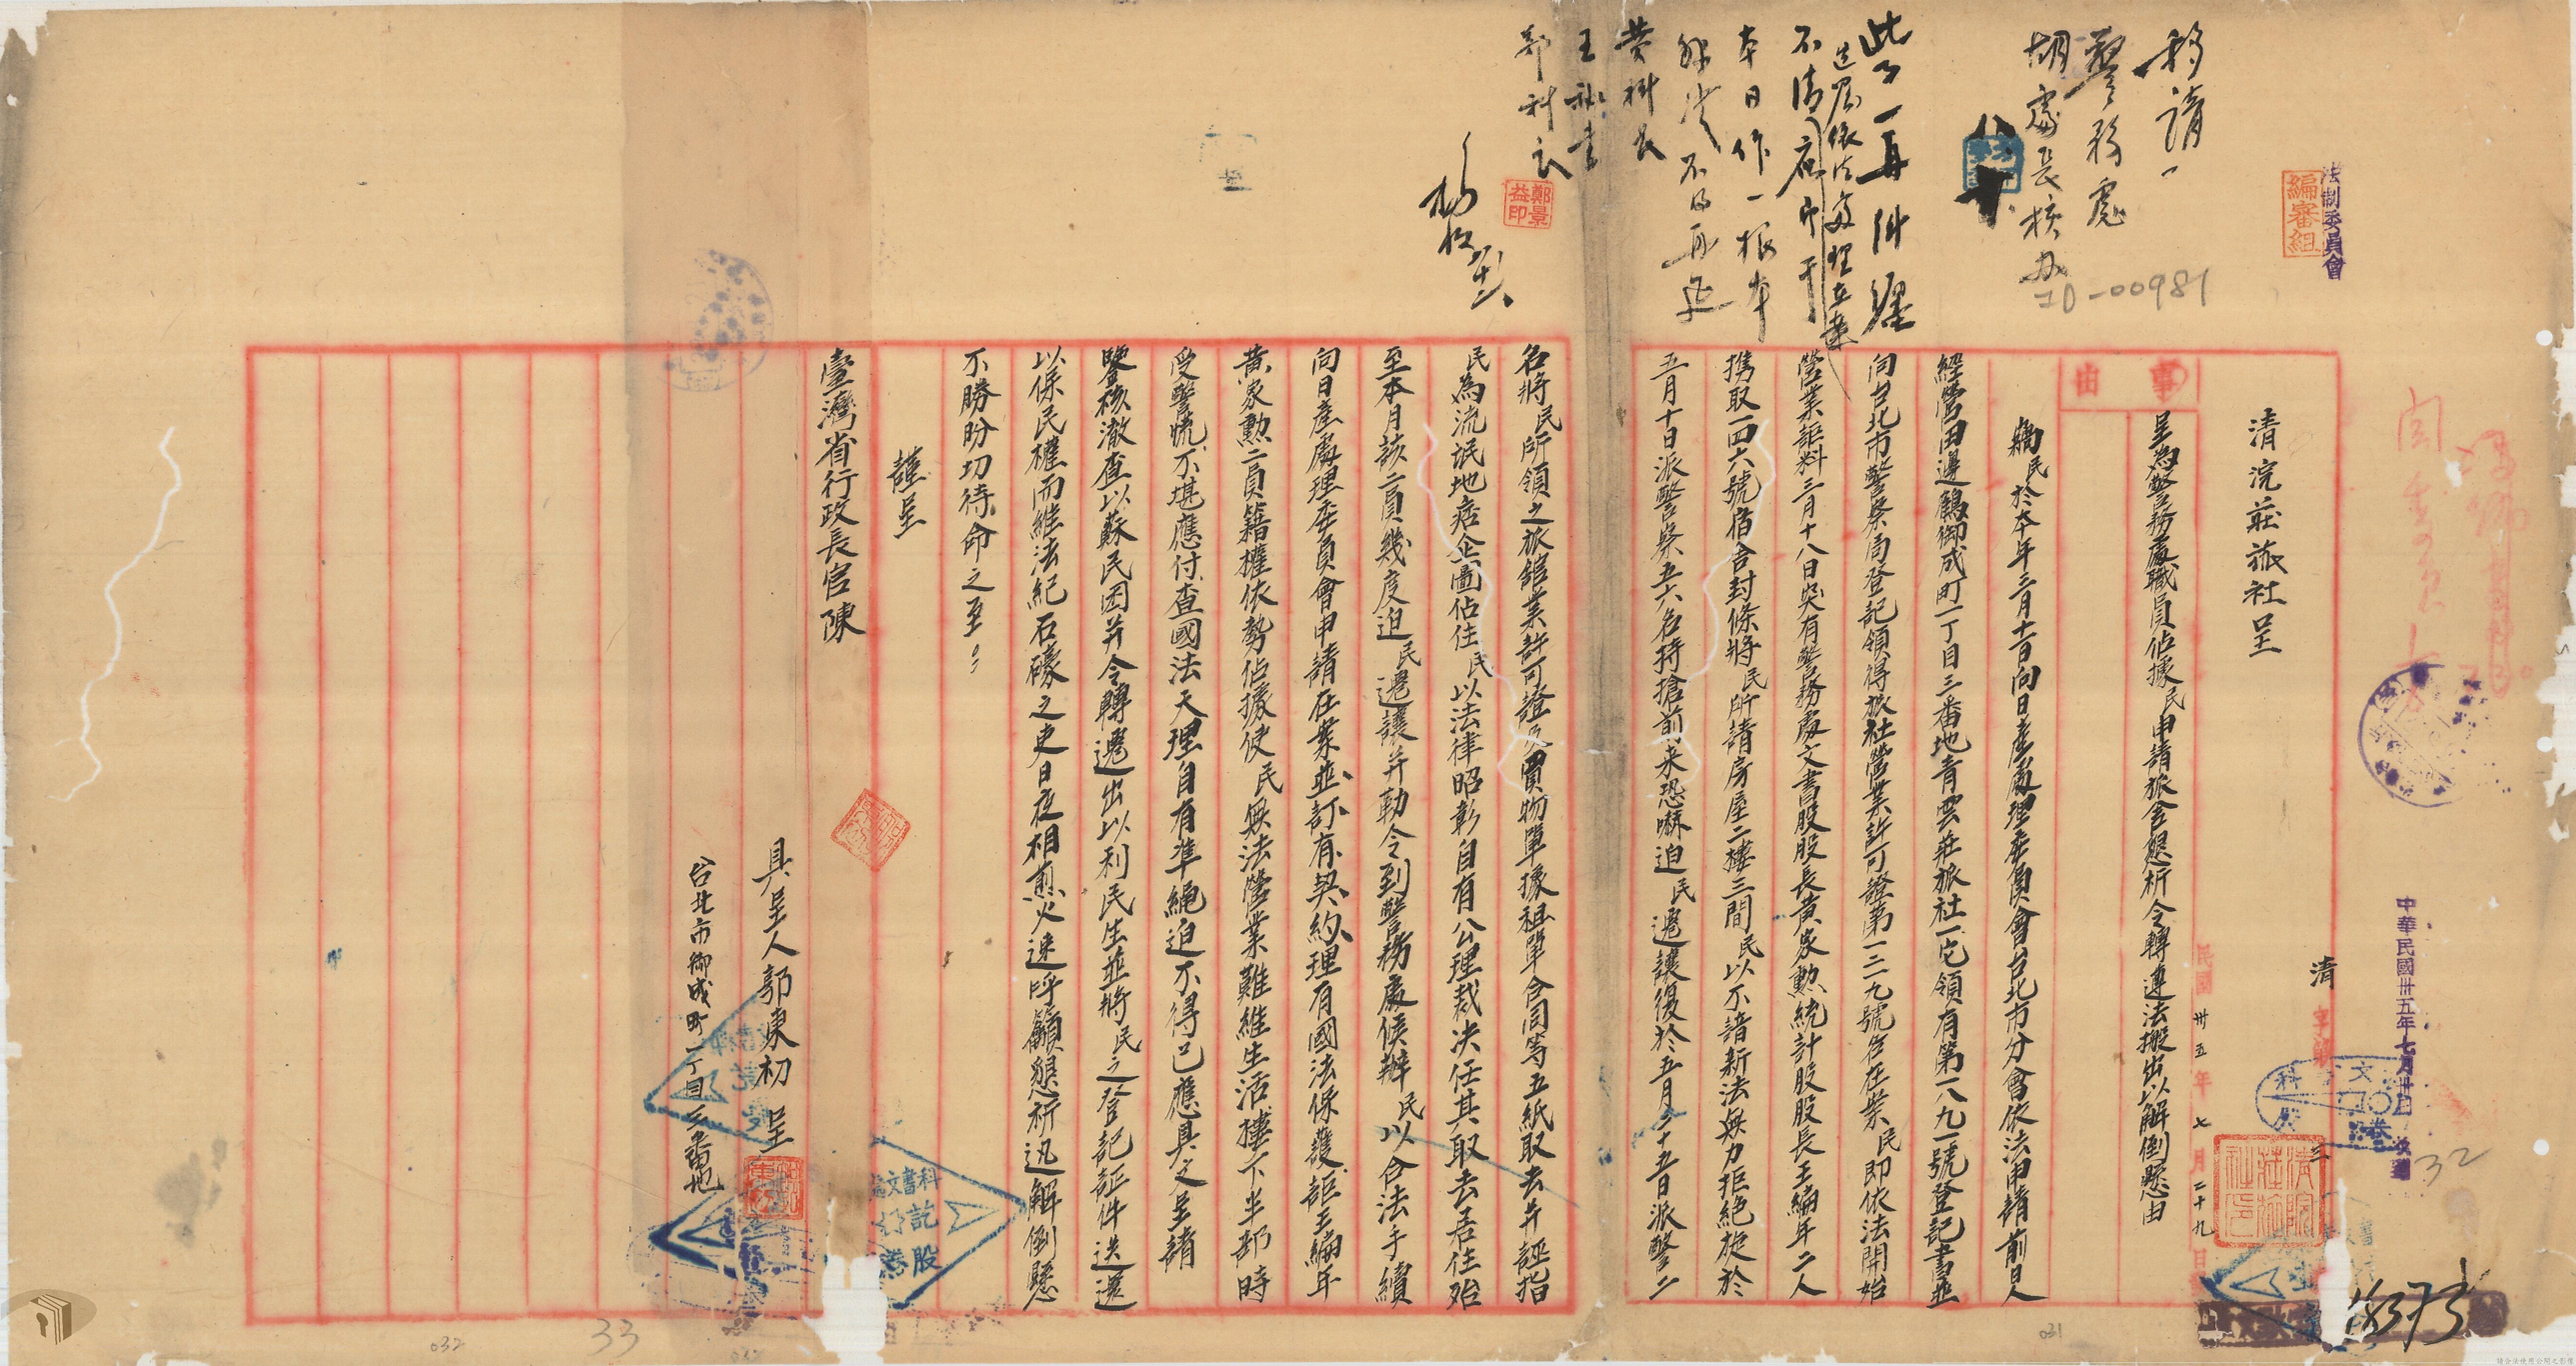 移請
警務處
胡處長核办
此ろ一再件經
送層依法處理立業
不清
本日作一根本
解決不得再延
黃科長
王秘書
郭科長
鄭景益印
法制委員會
編審組
ID-00981
中華民國卅五年七月卅日收
清浣莊旅社呈
清 字第 三
民國卅五年七月二十九日
事由
呈為警務處職員佔據民申請旅舍懇祈令轉遵法搬出以解倒懸由
竊民於本年三月十一日向日產處理委員會台北市分會依法申請前日人
經營田邊鶴御成町一丁目三番地青雲莊旅社一宅領有第一八九一號登記書並
向台北市警察局登記領得旅社營業許可證第一二一九號各在案民即依法開始
營業詎料三月十八日突有警務處文書股股長黃家勲統計股股長王編年二人
携取一四六號宿舍封條將民所請房屋二樓三間民以不諳新法無力拒絕旋於
五月十日派警察五六名持搶前来恐嚇迫民遷讓復於五月二十五日派警二
名將民所領之旅舘業許可證及買物單據租單合同等五紙取去并誣指
民為流氓地痞企圖佔住民以法律昭彰自有公理裁决任其取去居住殆
至本月該二員幾度迫民遷讓并勒令到警務處候辦民以合法手續
向日產處理委員會申請在業並訂有契約理有國法保護詎王編年
黃家勲二員籍權依勢佔據使民無法營業難維生活樓下半部時
受警慌不堪應付查國法天理自有準繩迫不得已應具文呈請
鑒核澈查以蘇民困并令轉遷出以利民生並將民之登記証件送還
以保民權而維法紀石磉之吏日夜相煎火速呼籲懇祈迅解倒懸
不勝盼切待命之至
謹呈
臺灣省行政長官陳
具呈人郭東初 呈
台北市御成町一丁目三番地
文書科
32
33
031
032